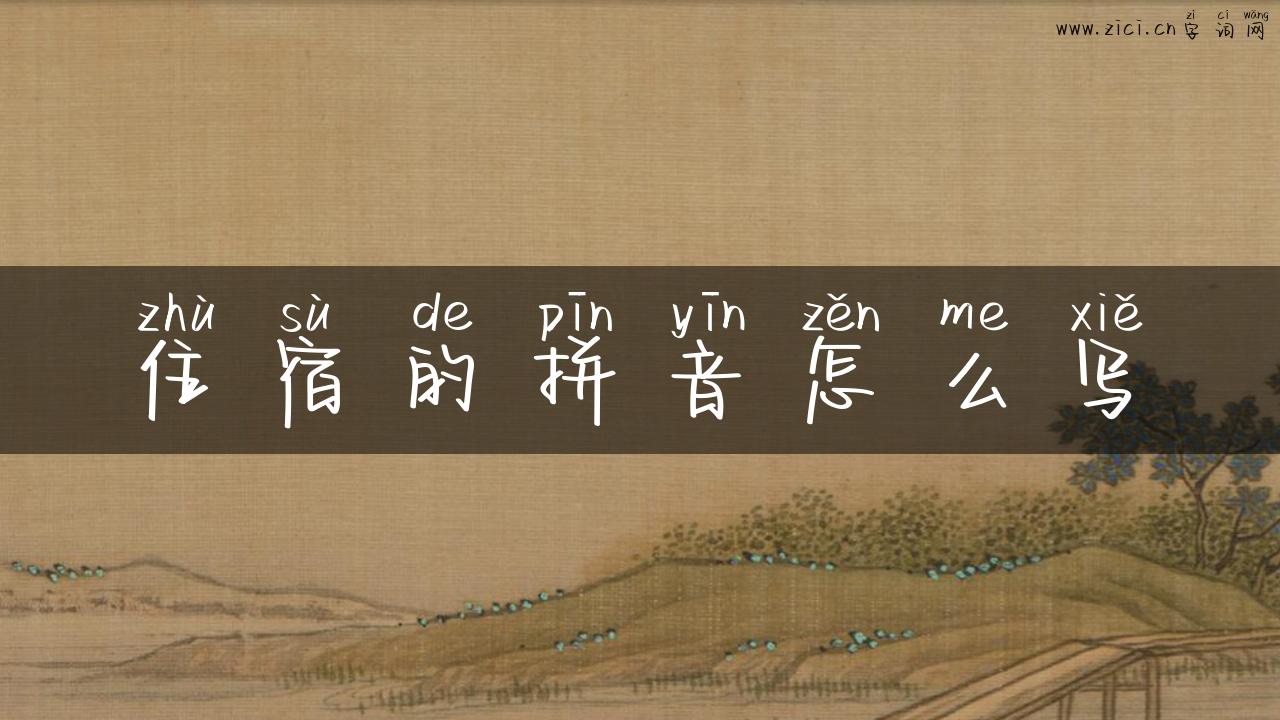 zì cí wǎng
www.zici.cn 字词网
zhù sù de pīn yīn zěn me xiě
住宿的拼音怎么写